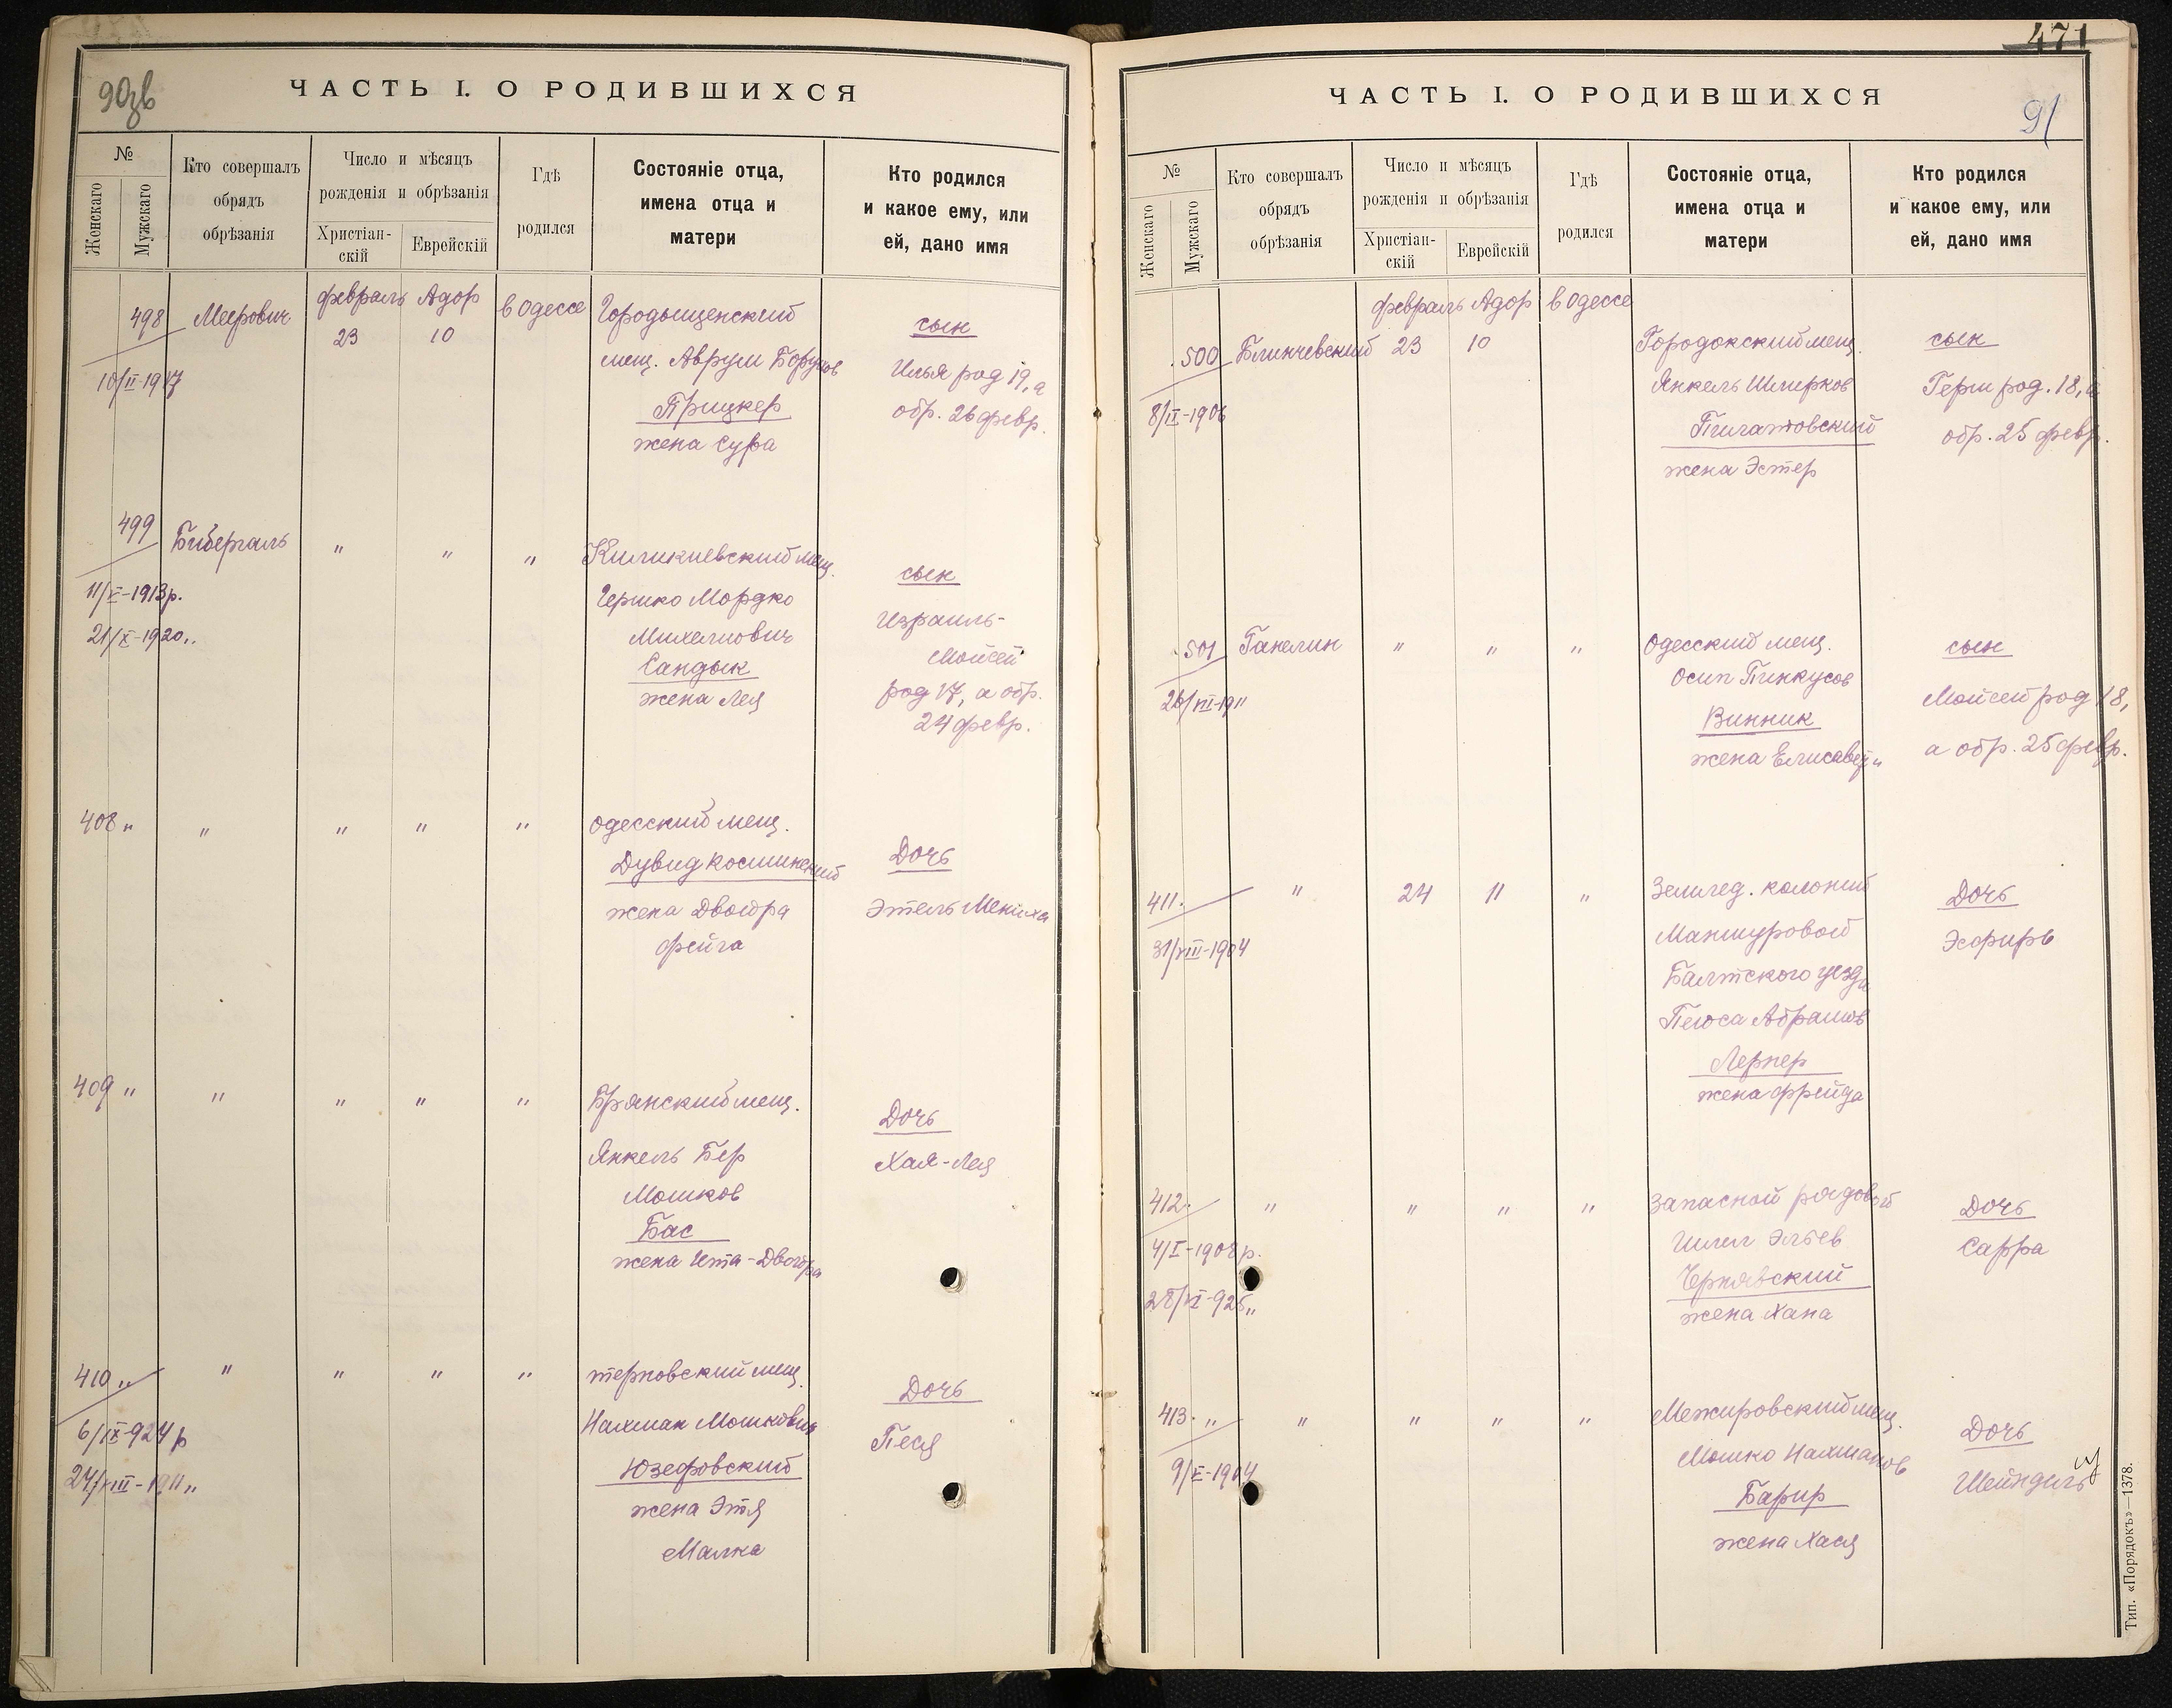 90зв
ЧАСТЬ I. О РОДИВШИХСЯ
№
Женскаго
Мужскаго
Кто совершалъ
обрядъ
обрѣзанія
Число и мѣсяцъ
рожденія и обрѣзанія
Христіан-
скій
Еврейскій
Гдѣ
родился
Состояніе отца,
имена отца и
матери
Кто родился
и какое ему, или
ей, дано имя
498 Меерович февраль Адор в Одессе Городыщенский
23 10
мещ. Аврум Борухов
Прицкер
жена Сура
сын
Илья род 19, а
обр. 26 февр.
10/II-1917
499 Бибергаль " " "
11/V-1913 р.
21/X-1920 "
Киликиевский мещ.
Гершко Мордко
Михелиович
Сандык
жена Лея
сын
Израиль-
Мойсей
род 17, а обр.
24 февр.
408 " " " " "
Одесский мещ.
Дувид Косминский
жена Двойра
Фейга
Дочь
Этель Мениха
409 " " " " "
Брянский мещ.
Янкель Бер
Мошков
Бас
жена Ита-Двойра
Дочь
Хая-Лея
410 " " " " "
6/IX-924 р
24/VIII-1911 "
терновский мещ.
Нахман Мошкович
Юзефовский
жена Этя
Малка
Дочь
Песя
471
91
ЧАСТЬ I. О РОДИВШИХСЯ
№
Женскаго
Мужскаго
Кто совершалъ
обрядъ
обрѣзанія
Число и мѣсяцъ
рожденія и обрѣзанія
Христіан-
скій
Еврейскій
Гдѣ
родился
Состояніе отца,
имена отца и
матери
Кто родился
и какое ему, или
ей, дано имя
февраль Адор в Одессе
500 Блинчевский 23 10
8/II-1906
Городокский мещ.
Янкель Шмирков
жена Эстер
сын
Герш род. 18, а
обр. 25 февр.
501 Ганелин " " "
26/VIII-1911
Одесский мещ.
Осип Пинкусов
Винник
жена Елисавета
сын
Мойсей род 18,
а обр. 25 февр.
411. " 24 11 "
31/VIII-1904
Землед. колоний
Маншуровой
Балтского уезда
Пейса Абрамов
Лернер
жена Фрейда
Дочь
Эсфирь
412. " " " "
4/I-1908 р.
28/VI-925 "
Запасной рядовой
Шлил Эльев
Чернявский
жена Хана
Дочь
Сарра
413. " " " " "
9/V-1904
Межировский мещ.
Мошко Нахманов
Барир
жена Хася
Дочь
Шейндиль
Тип. «Порядокъ»—1378.